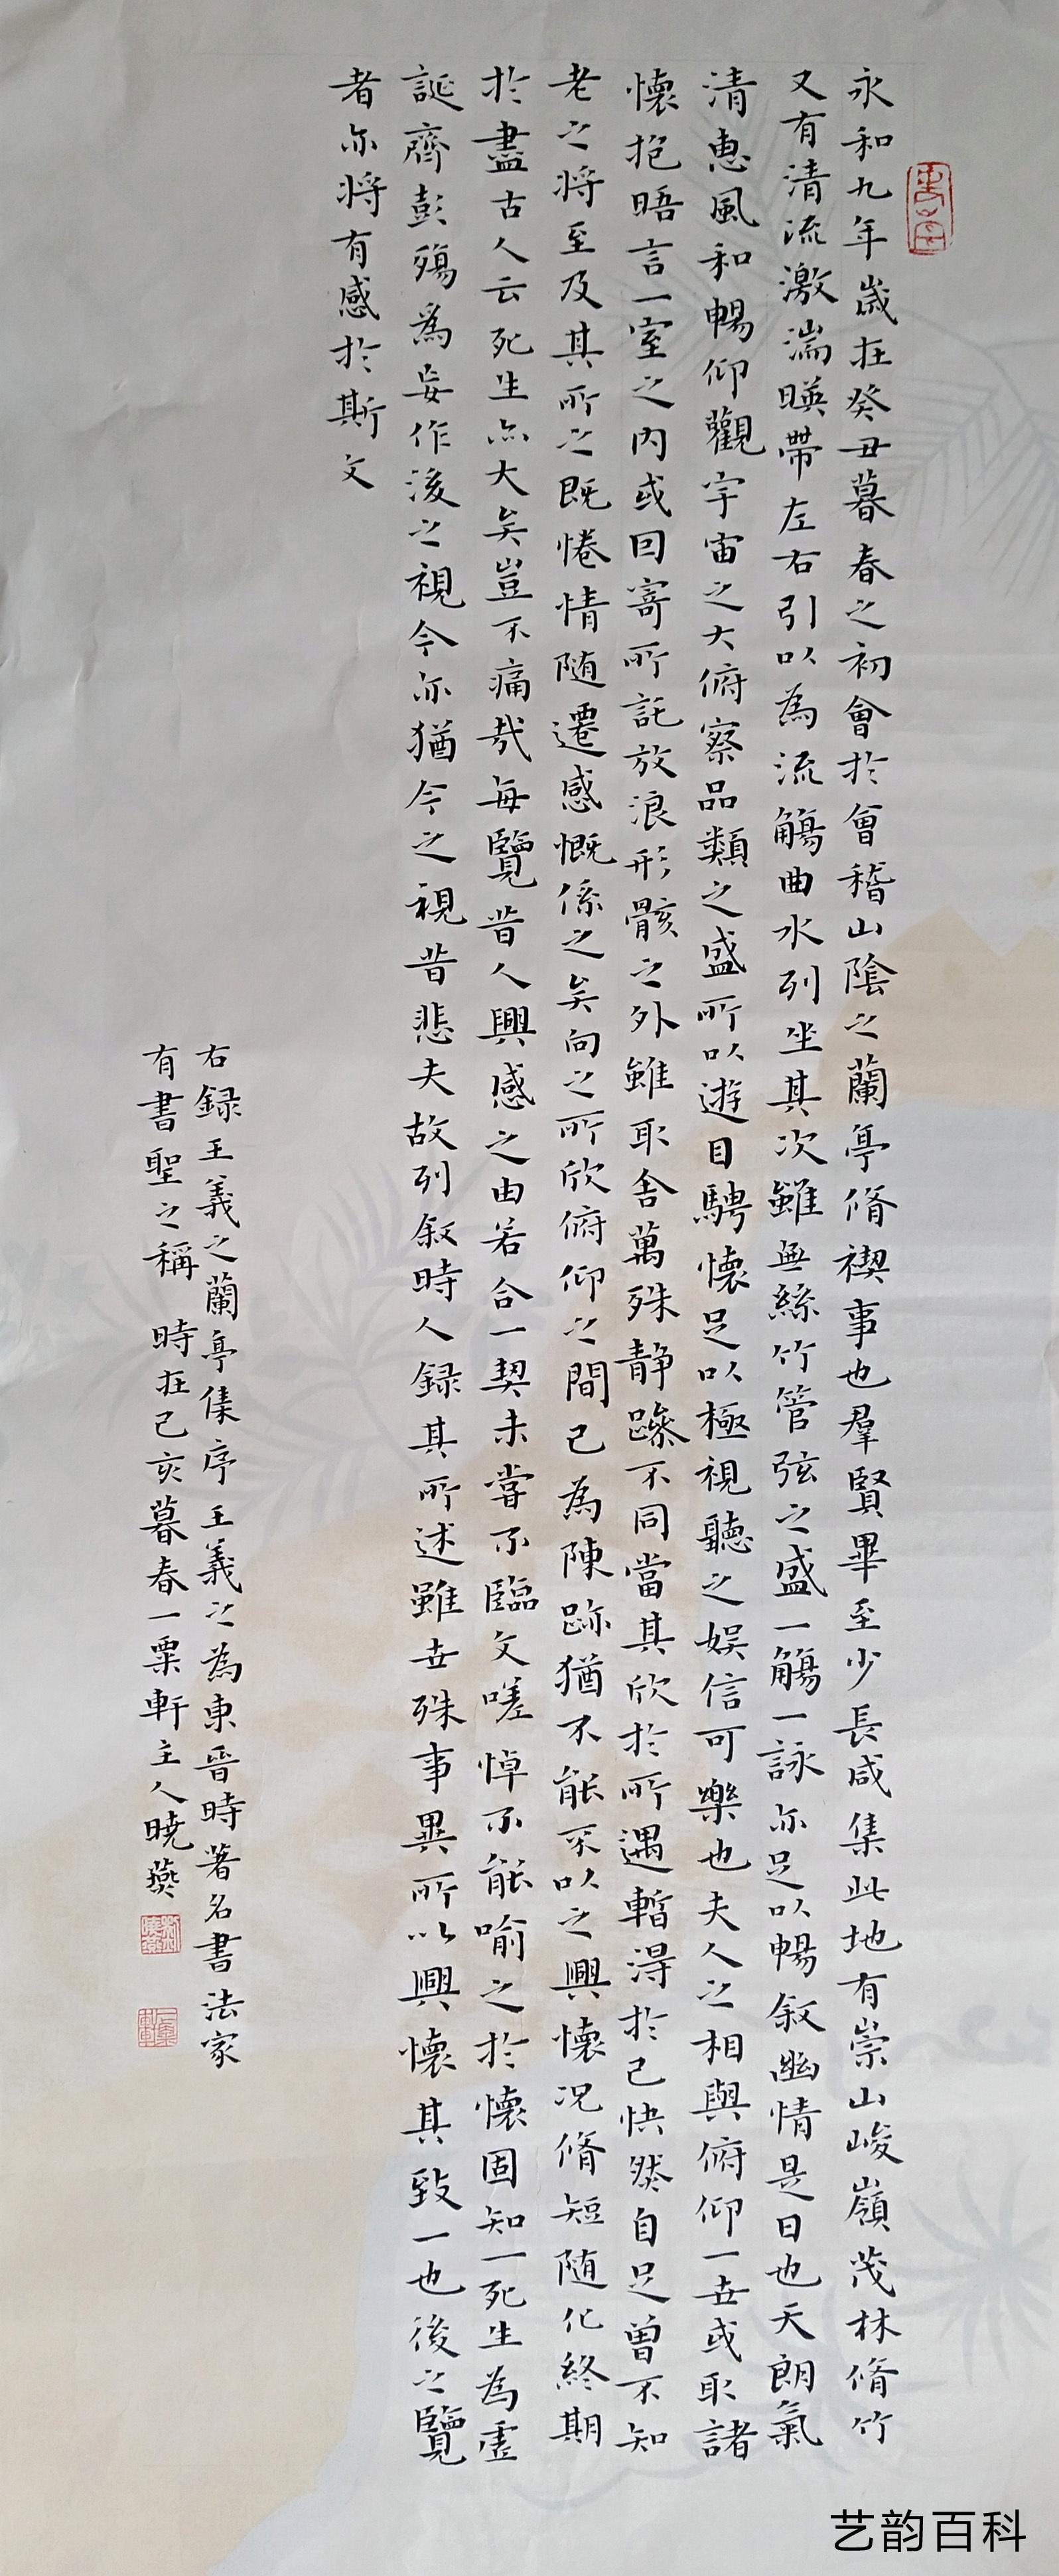 永和九年歲在癸丑暮春之初會於會稽山陰之蘭亭脩禊事也羣賢畢至少長咸集此地有崇山峻嶺茂林脩竹
又有清流激湍暎帶左右引以為流觴曲水列坐其次雖無絲竹管弦之盛一觴一詠亦足以暢敘幽情是日也天朗氣
清惠風和暢仰觀宇宙之大俯察品類之盛所以遊目騁懷足以極視聽之娛信可樂也夫人之相與俯仰一世或取諸
懷抱晤言一室之內或因寄所託放浪形骸之外雖取舍萬殊静躁不同當其欣於所遇暫得於己快然自足曾不知
老之將至及其所之既惓情随遷感慨係之矣向之所欣俯仰之間已為陳跡猶不能不以之興懷况脩短随化終期
於盡古人云死生亦大矣豈不痛哉每覽昔人興感之由若合一契未嘗不臨文嗟悼不能喻之於懷固知一死生為虛
誕齊彭殤爲妄作後之視今亦猶今之視昔悲夫故列敘時人録其所述雖世殊事異所以興懷其致一也後之覽
者亦將有感於斯文
右録王羲之蘭亭集序王羲之為東晉時著名書法家
有書聖之稱 時在己亥暮春一粟軒主人曉燕
艺韵百科